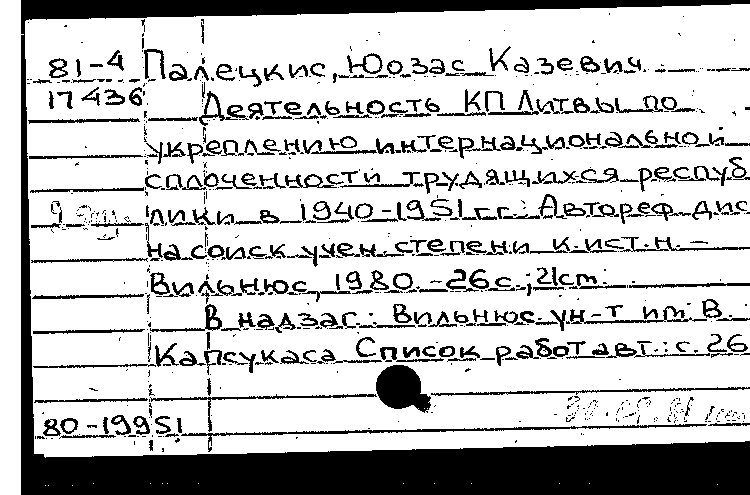 81-4 Палецкис, Юозас Казевич
17436 Деятельность КП Литвы по
укреплению интернациональной
сплоченности трудящихся респуб
лики в 1940-1951 гг.: Автореф дис
на соиск учен. степени к.ист.н. –
Вильнюс, 1980. -26с.; 21cm.
В надзаг.: Вильнюс. ун-т им. В
Капсукаса Список работ авт.: с. 26
80-19951